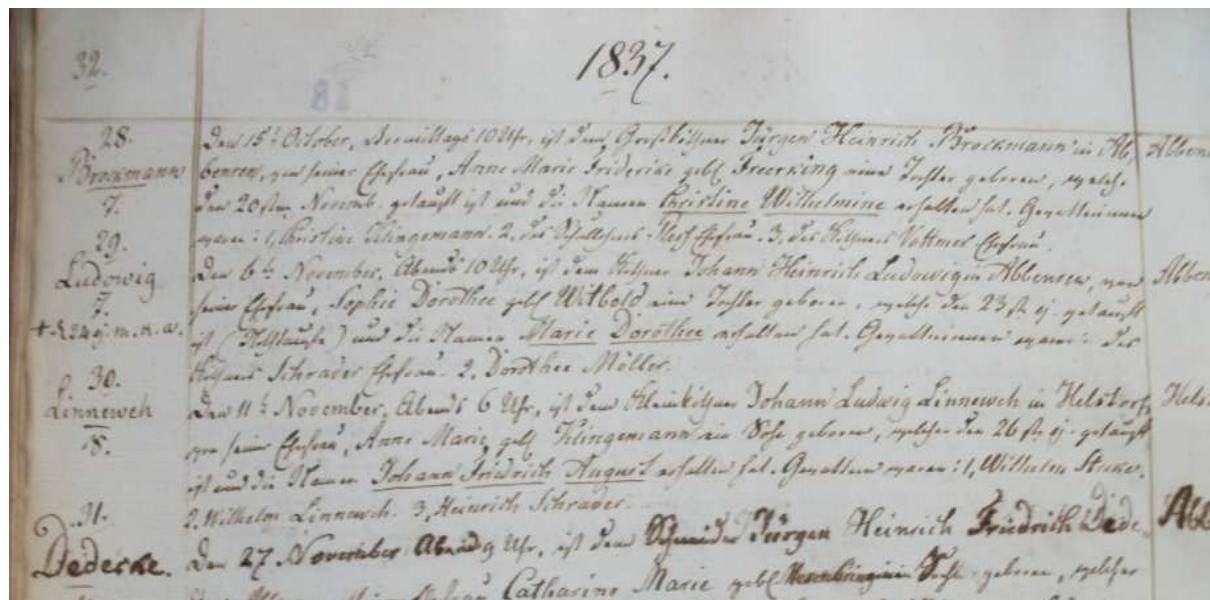 32.
1837.
28.
Brockmann
7.
Den 15t October, Vormittags 10 Uhr, ist dem Großköthner Jürgen Heinrich Brockmann in Ab,
Abben
bensen, von seiner Ehefrau, Anne Marie Friderike geb. Freerking eine Tochter geboren, welche
den 20sten Novemb. getauft ist und die Namen Christine Wilhelmine erhalten hat. Gevatterinnen
waren: 1, Christine Klingemann. 2, des Ehefrau. 3, des Köthners Vollmer Ehefrau.
29.
Ludowig
7.
Den 6t November, Abends 10 Uhr, ist dem Köthner Johann Heinrich Ludowig in Abbensen, von
Abben
seiner Ehefrau, Sophie Dorothee geb. Witbold eine Tochter geboren, welche den 23st ej. getauft
ist (Nothtaufe) und die Namen Marie Dorothee erhalten hat. Gevatterinnen waren: des
Köthners Schrader Ehefrau. 2, Dorothee Möller.
30.
Linneweh
18.
Den 11t November, Abends 6 Uhr, ist dem Kleinköthner Johann Ludwig Linneweh in Helstorf,
Helst
von seiner Ehefrau, Anne Marie, geb. Klingemann ein Sohn geboren, welcher den 26st ej. getauft
ist und die Namen Johann Friedrich August erhalten hat. Gevattern waren: 1, Wilhelm
2, Wilhelm Linneweh. 3, Heinrich Schrader.
31.
Dederke.
Den 27 November Abends 9 Uhr, ist dem Schneider Jürgen Heinrich Friedrich Dede
Abb
Catharine Marie geb. Sohn geboren, welcher